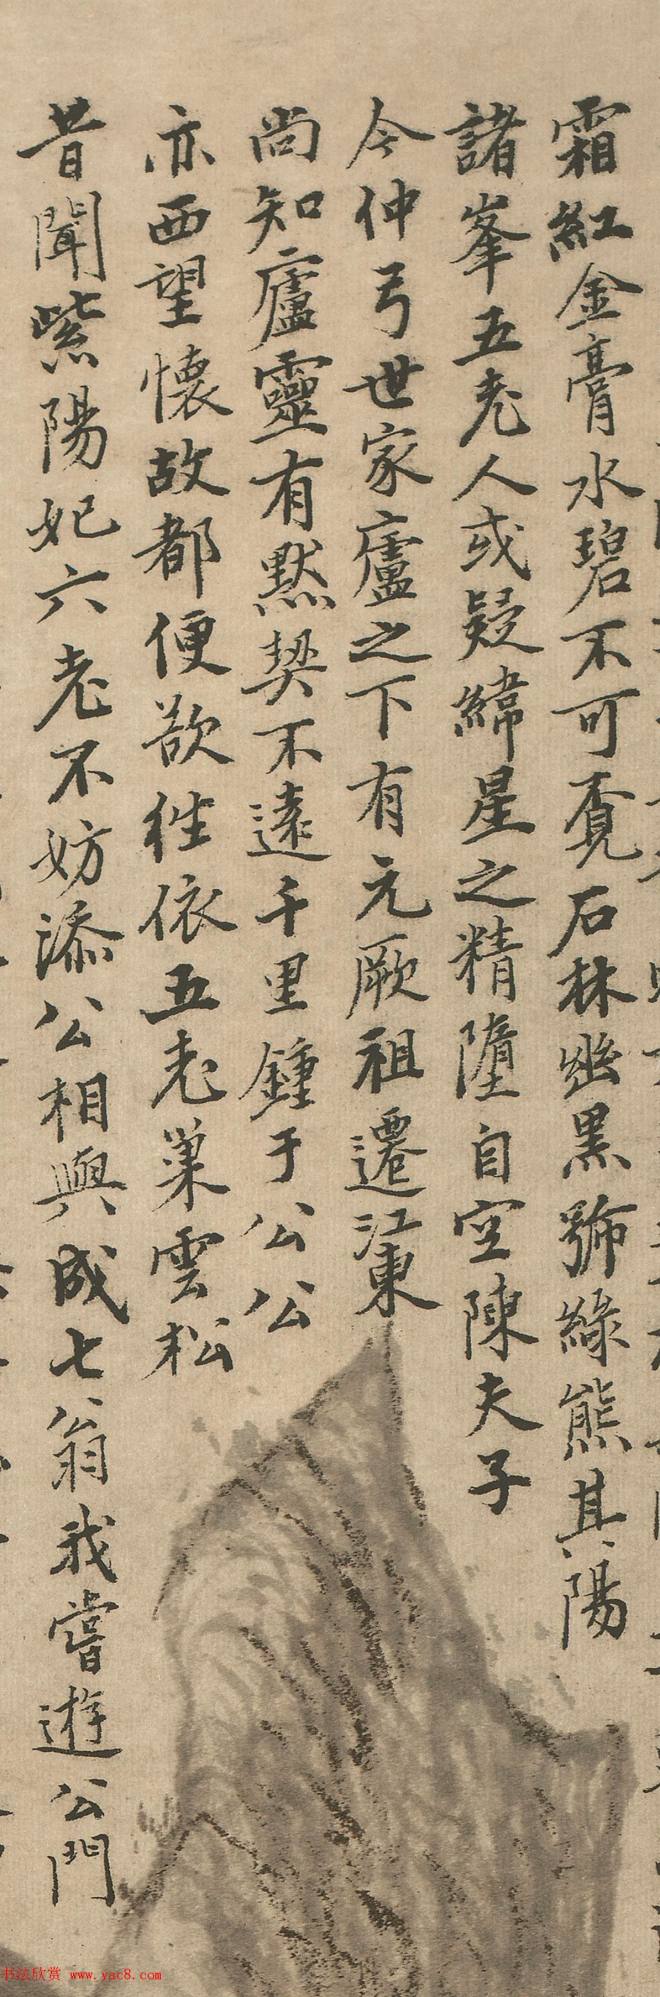 霜紅金膏水碧不可覔石林幽黑號綠熊其陽
諸峯五老人或疑緯星之精隋自空陳夫子
今仲弓世家廬之下有元厥祖遷江東
尚知廬靈有默契不遠千里鍾于公公
亦西望懷故都便欲往依五老巢雲松
昔聞紫陽妃六老不妨添公相與成七翁我嘗遊公門
书法欣赏 www.yac8.com